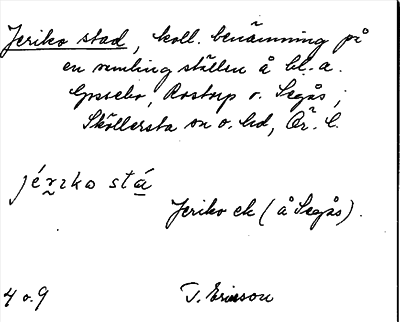 Jeriko stad, koll. benämning på
en samling ställen å bl. a.
Rostorp o. Segås;
Sköllersta sn o. hd, Ör. l.
jérɪko stá
Jeriko ek (å Segås).
4 o. 9 T. Ericsson